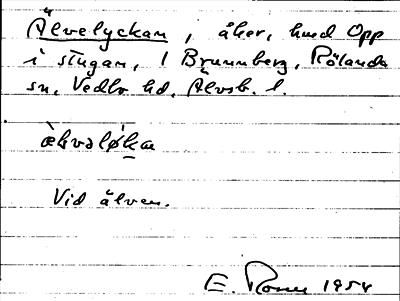 Älvelyckan, åker, hmd Opp
i stugan, 1 Brunnberg, Rölanda
sn, Vedbo hd, Älvsb. l.
Vid älven.
E. 1954